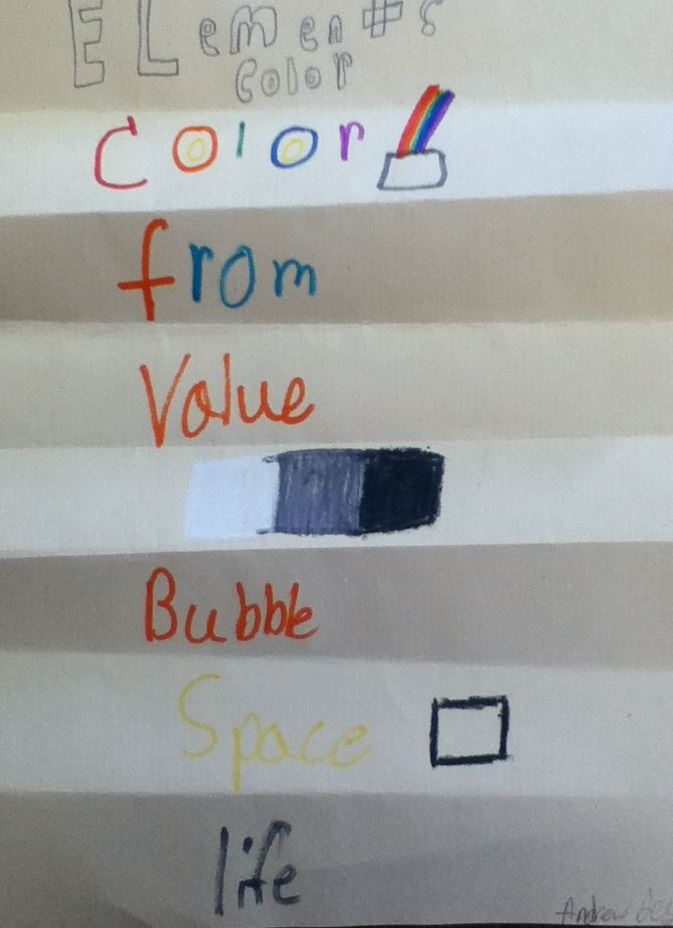 ELements
Color
Color
from
Value
Bubble
Space
life
Andrew